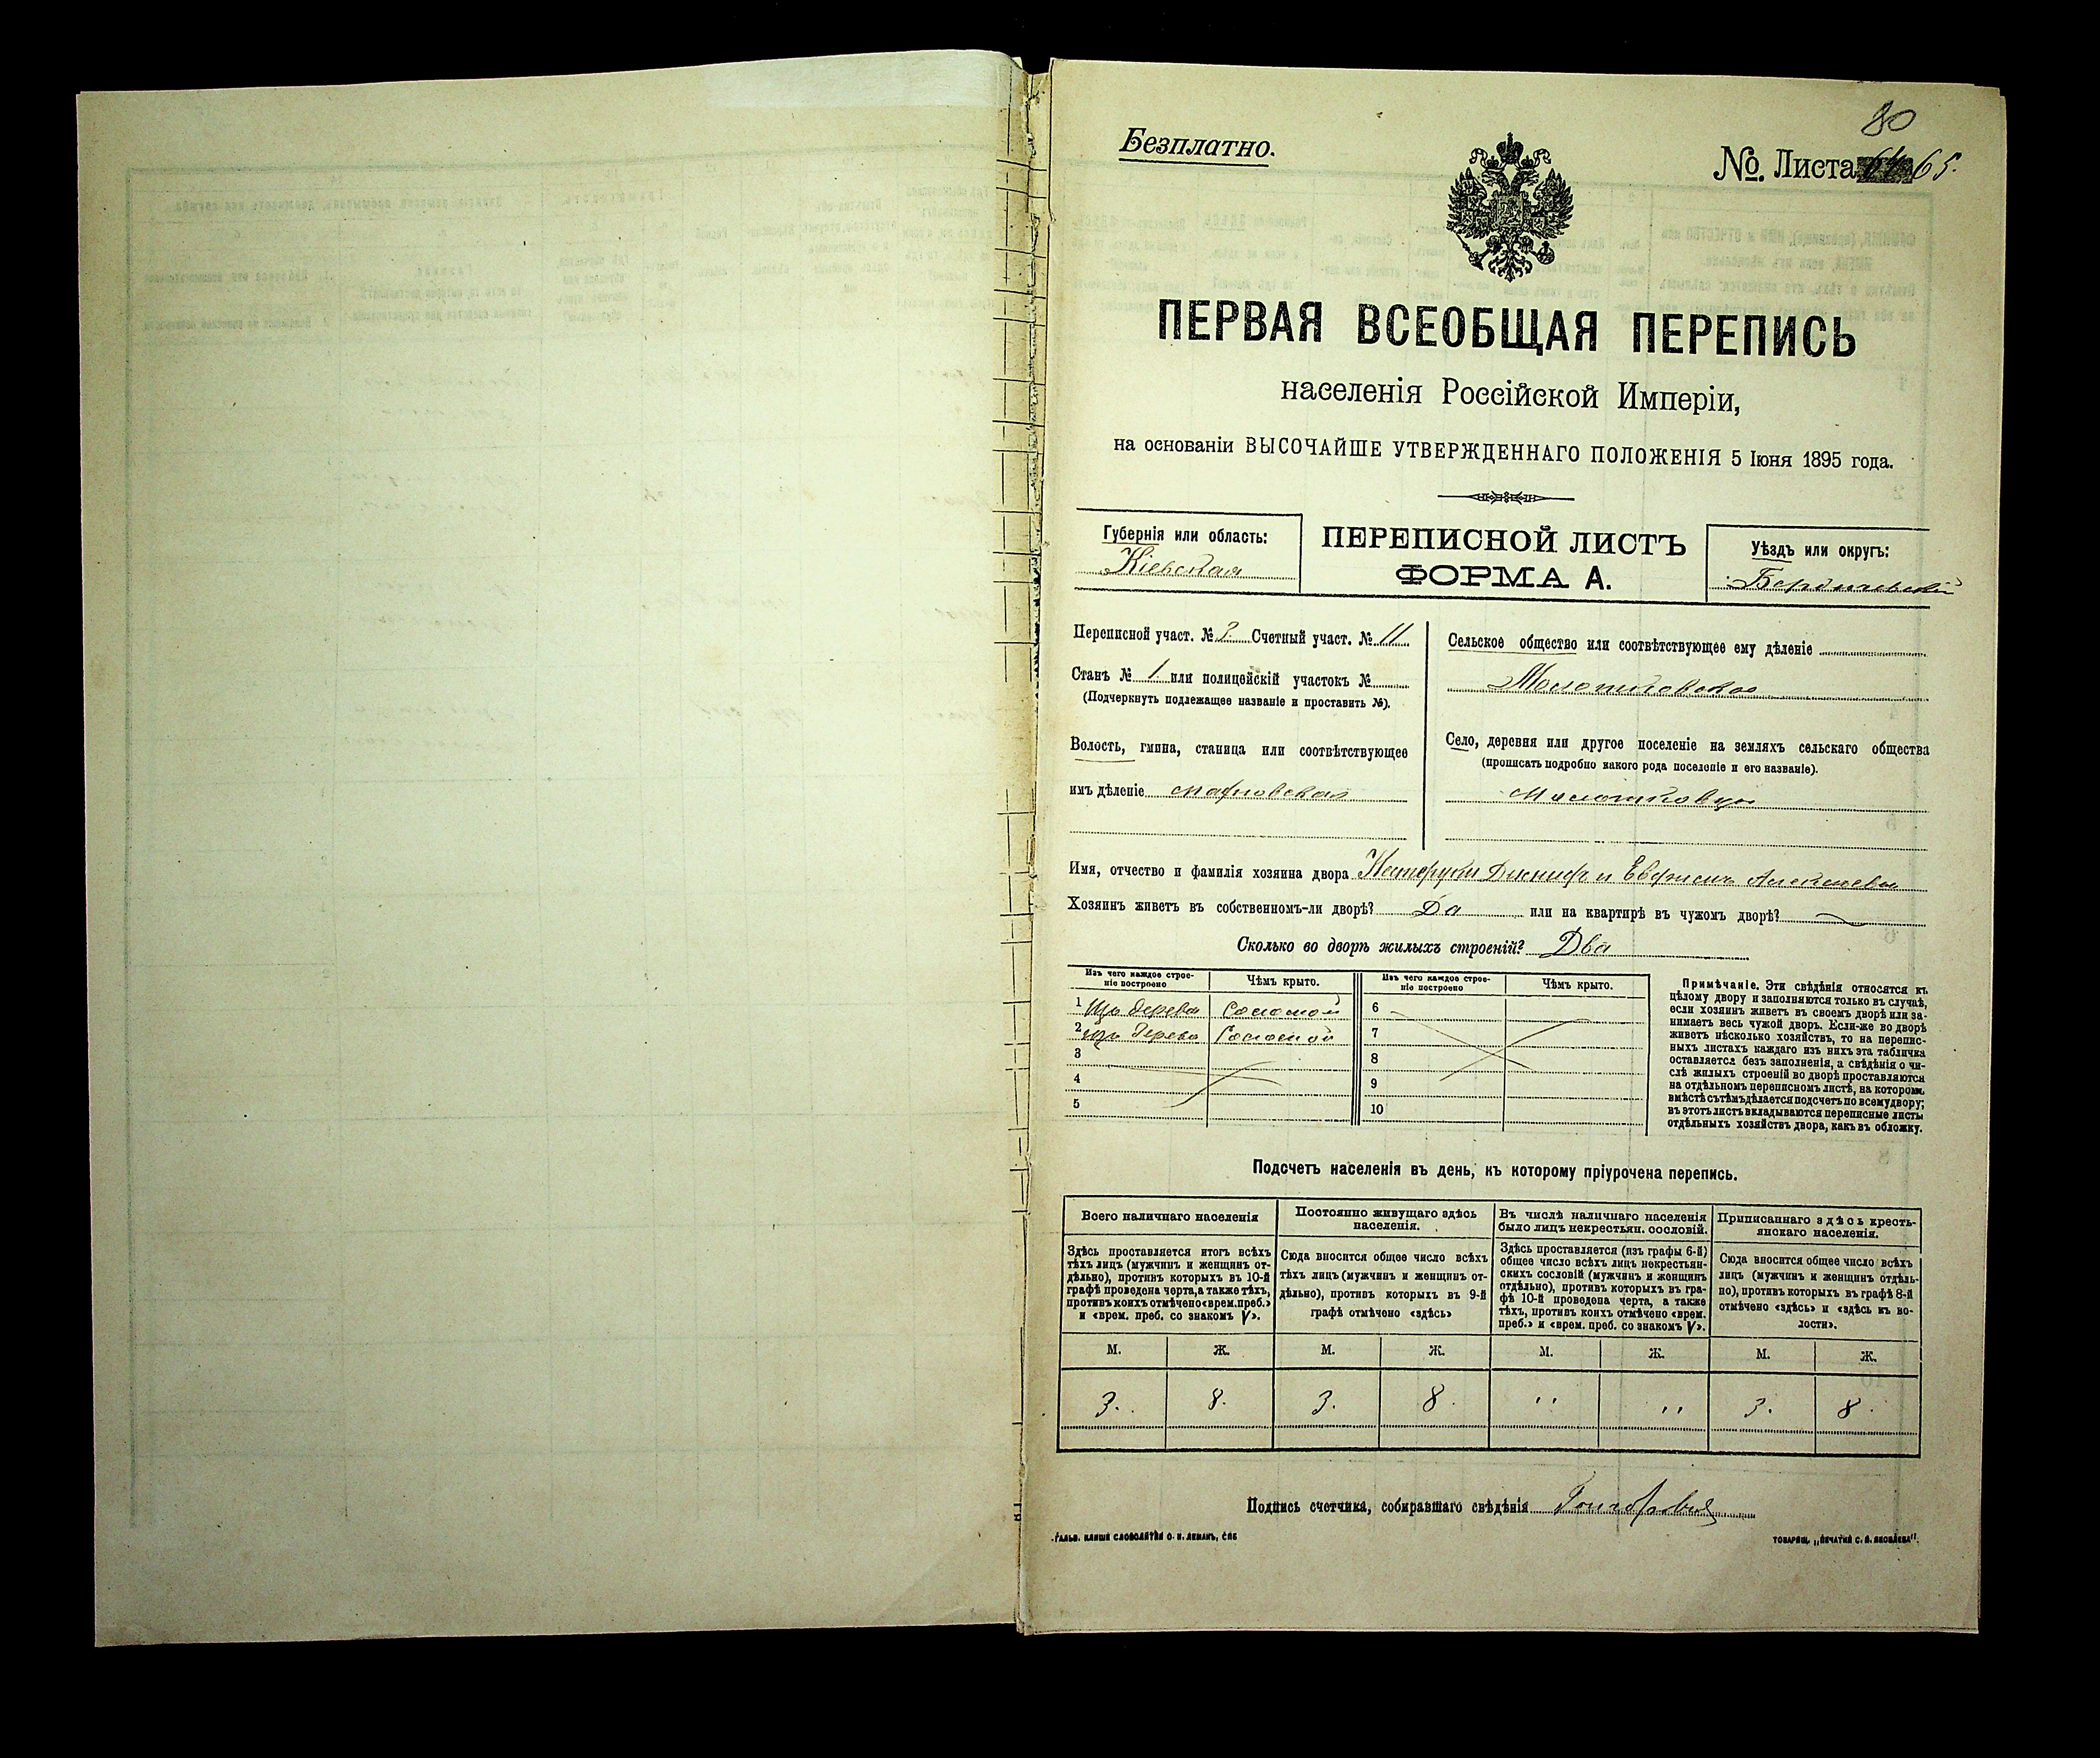 80
Безплатно.
№. Листа 65.
ПЕРВАЯ ВСЕОБЩАЯ ПЕРЕПИСЬ
населенія Россійской Имперіи,
на основаніи ВЫСОЧАЙШЕ УТВЕРЖДЕННАГО ПОЛОЖЕНІЯ 5 Іюня 1895 года.
Губернія или область:
Кіевская
ПЕРЕПИСНОЙ ЛИСТЪ
ФОРМА А.
Уѣздъ или округъ:
Бердичевскій
Переписной участ. № Счетный участ. № 11
Станъ № 1. или полицейскій участокъ №
(Подчеркнуть подлежащее названіе и проставить №).
Волость, гмина, станица или соотвѣтствующее
имъ дѣленіе махновская
Сельское общество или соотвѣтствующее ему дѣленіе
Село, деревня или другое поселеніе на земляхъ сельскаго общества
(прописать подробно какого рода поселеніе и его названіе).
Имя, отчество и фамилія хозяина двора Нестерукъ и
Хозяинъ живетъ въ собственномъ-ли дворѣ? Да или на квартирѣ въ чужомъ дворѣ?
Сколько во дворѣ жилыхъ строеній? Два
Изъ чего каждое строе-
ніе построено
Чѣмъ крыто.
1 Изъ дерева Соломой
2 изъ дерева Соломой
3
4
5
Изъ чего каждое строе-
ніе построено
Чѣмъ крыто.
6
7
8
9
10
Примѣчаніе. Эти свѣдѣнія относятся къ
цѣлому двору и заполняются только въ случаѣ,
если хозяинъ живетъ въ своемъ дворѣ или за-
нимаетъ весь чужой дворъ. Если-же во дворѣ
живетъ нѣсколько хозяйствъ, то на перепис-
ныхъ листахъ каждаго изъ нихъ эта табличка
оставляется безъ заполненія, а свѣдѣнія о чи-
слѣ жилыхъ строеній во дворѣ проставляются
на отдѣльномъ переписномъ листѣ, на которомъ
вмѣстѣ съ тѣмъ дѣлается подсчетъ по всему двору;
въ этотъ листъ вкладываются переписные листы
отдѣльныхъ хозяйствъ двора, какъ въ обложку.
Подсчетъ населенія въ день, къ которому пріурочена перепись.
Всего наличнаго населенія
Здѣсь проставляется итогъ всѣхъ
тѣхъ лицъ (мужчинъ и женщинъ от-
дѣльно), противъ которыхъ въ 10-й
графѣ проведена черта, а также тѣхъ,
противъ коихъ отмѣчено «врем. преб.»
и «врем. преб. со знакомъ V».
Постоянно живущаго здѣсь
населенія.
Сюда вносится общее число всѣхъ
тѣхъ лицъ (мужчинъ и женщинъ от-
дѣльно), противъ которыхъ въ 9-й
графѣ отмѣчено «здѣсь»
Въ числѣ наличнаго населенія
было лицъ некрестьян. сословій.
Здѣсь проставляется (изъ графы 6-й)
общее число всѣхъ лицъ некрестьян-
скихъ сословій (мужчинъ и женщинъ
отдѣльно), противъ которыхъ въ гра-
фѣ 10-й проведена черта, а также
тѣхъ, противъ коихъ отмѣчено «врем.
преб.» и «врем. преб. со знакомъ V».
Приписаннаго здѣсь кресть-
янскаго населенія.
Сюда вносится общее число всѣхъ
лицъ (мужчинъ и женщинъ отдѣль-
но), противъ которыхъ въ графѣ 8-й
отмѣчено «здѣсь» и «здѣсь въ во-
лости».
М. Ж. М. Ж. М. Ж. М. Ж.
3. 8. 3. 8. " " 3. 8.
Подпись счетчика, собиравшаго свѣдѣнія
ГАЛЬВ. КЛИШЕ СЛОВОЛИТНИ О. И. ЛЕМАНЪ, СПБ
ТОВАРИЩ. „ПЕЧАТНИ С. П. ЯКОВЛЕВА".